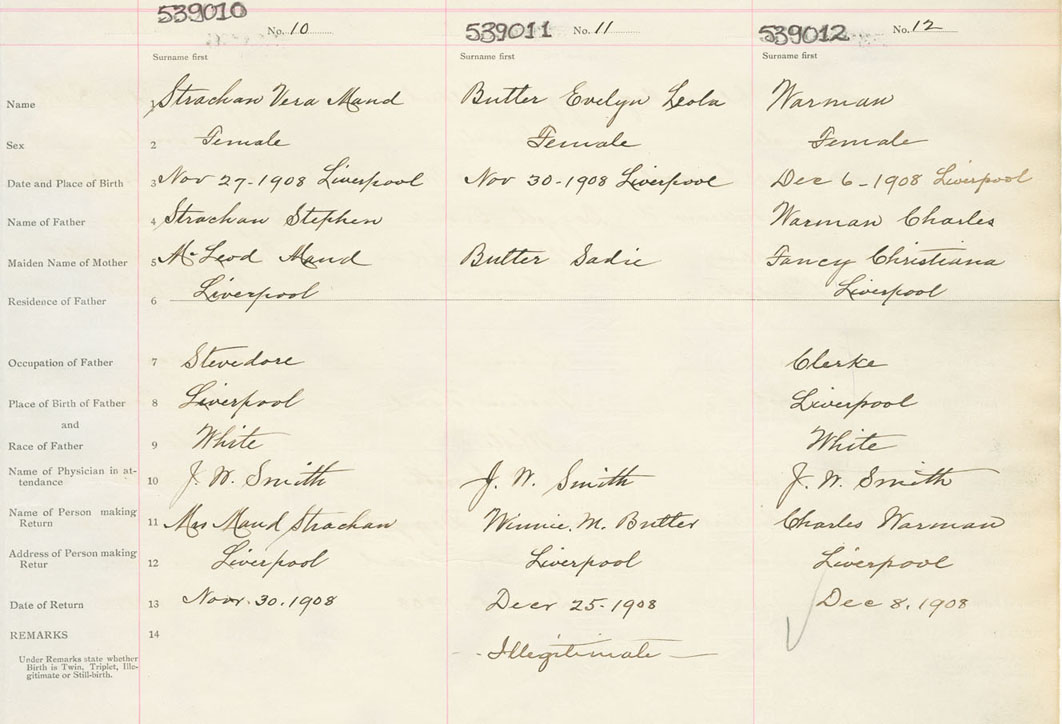 539010 No. 10 539011 No. 11 539012 No. 12
Surname first Surname first Surname first
Name 1 Strachan Vera Maud Butler Evelyn Leola Warman
Sex 2 Female Female Female
Date and Place of Birth 3 Nov 27-1908 Liverpool Nov 30-1908 Liverpool Dec 6-1908 Liverpool
Name of Father 4 Strachan Stephen Warman Charles
Maiden Name of Mother 5 McLeod Maud Butler Sadie Fancy Christiana
Residence of Father 6 Liverpool Liverpool
Occupation of Father 7 Stevedore Clerke
Place of Birth of Father 8 Liverpool Liverpool
and
Race of Father 9 White White
Name of Physician in at-
tendance 10 J. W. Smith J. W. Smith J. W. Smith
Name of Person making
Return 11 Mrs Maud Strachan Winnie. M. Butler Charles Warman
Address of Person making
Retur 12 Liverpool Liverpool Liverpool
Date of Return 13 Novr. 30. 1908 Decr 25-1908 Dec 8. 1908
REMARKS 14
Under Remarks state whether
Birth is Twin, Triplet, Ille-
gitimate or Still-birth.
- Illegitimate -